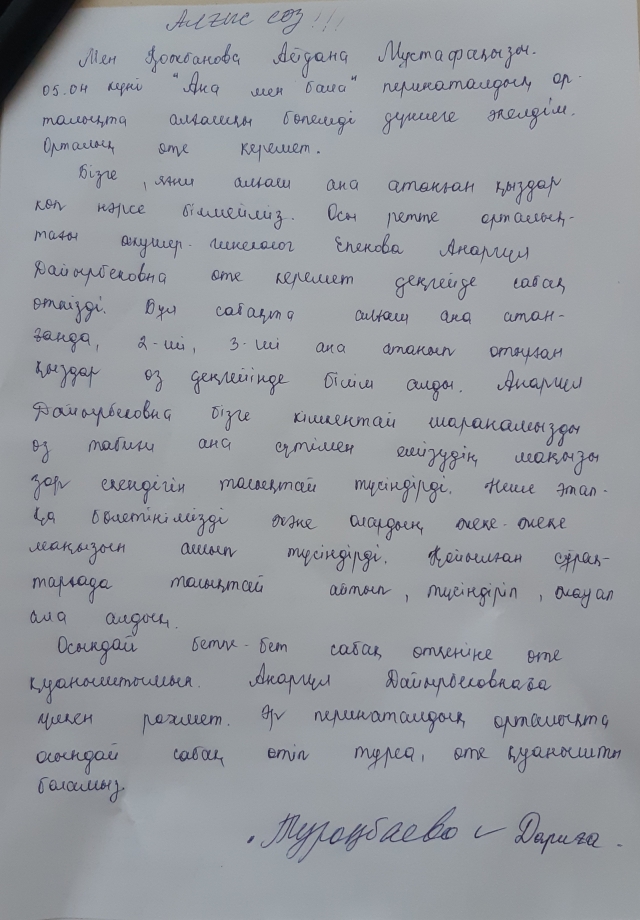 Алғыс сөз!!!
Мен Қожбанова Айдана Мұстафақызы.
05.04 күні "Ана мен бала" перинаталдық ор-
талықта алғашқы бөпемді дүниеге әкелдім.
Орталық өте керемет.
Бізге, яғни алғаш ана атанған қыздар
көп нәрсе білмейміз. Осы ретте орталық-
тағы акушер-гинеколог Епекова Анаргүл
Дайырбековна өте керемет деңгейде сабақ
өткізді. Бұл сабақта алғаш ана атан-
ғанда, 2-ші, 3-ші ана атанып отырған
қыздар өз деңгейінде білім алды. Анаргүл
Дайырбековна бізге кішкентай шаранамызды
өз табиғи ана сүтімен емізудің маңызы
зор екендігін талықтай түсіндірді. Неше этап-
қа бөлетінімізді және олардың жеке-жеке
маңызын ашып түсіндірді. Қойылған сұрақ-
тарғада талықтай айтып, түсіндіріп, жауап
ала алдық.
Осындай бетпе-бет сабақ өткеніне өте
қуаныштымын. Анаргүл Дайырбековнаға
үлкен рахмет. Әр перинаталдық орталықта
осындай сабақ өтіп тұрса, өте қуанышты
боламыз.
Дариға.